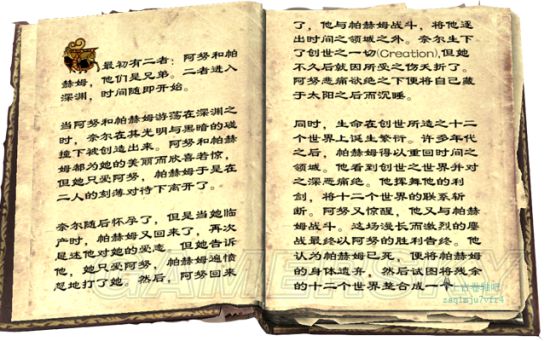 最初有二者：阿努和帕
赫姆，他们是兄弟。二者进入
深渊，时间随即开始。
当阿努和帕赫姆游荡在深渊之
时，奈尔在其光明与黑暗的碰
撞下被创造出来。阿努和帕赫
姆都为她的美丽而欣喜若惊，
但她只爱阿努，帕赫姆于是在
二人的刻薄对待下离开了。
奈尔随后怀孕了，但是当她临
产时，帕赫姆又回来了，再次
是述他对她的爱恋。但她告诉
他，她只爱阿努，帕赫姆遍愤
怒地打了她。然后，阿努回来
了，他与帕赫姆战斗，将他逐
出时间之领域之外。奈尔生下
了创世之一切(Creation),但她
不久后就因所受之伤夭折了。
阿努悲痛欲绝之下便将自己藏
于太阳之后而沉睡。
同时，生命在创世所造之十二
个世界上诞生繁衍。许多年代
之后，帕赫姆得以重回时间之
领域。他看到创世之世界并对
之深恶痛绝。他挥舞他的利
剑，将十二个世界的联系斩
断。阿努又惊醒，他又与帕赫
姆战斗。这场漫长而激烈的鏖
战最终以阿努的胜利告终。他
认为帕赫姆已死，便将帕赫姆
的身体遗弃，然后试图将残余
的十二个世界整合成一个
上古卷轴吧
zaq1mju7vfr4
GAMERSKY